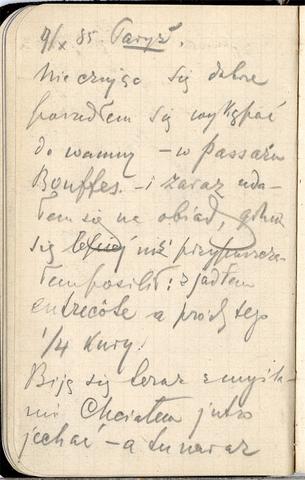 9/X 85. Paryż.
Nie czując się dobrze
poszedłem się wykąpać
do wanny – w passażu
Bouffes. – i zaraz uda-
łem się na obiad, gdzie
się lepiej niż przypuszcza-
łem posilił: zjadłem
entrecôte a prócz tego
1/4 kury.
Biję się teraz z myśla-
mi Chciałem jutro
jechać – a tu naraz